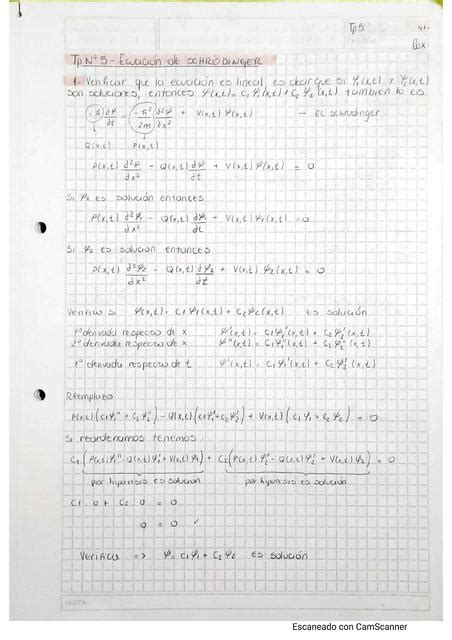 Tp 5
Tp N° 5 - Ecuación de SCHRÖDINGER
1- Verificar que la ecuación es lineal es decir que si Ψ₁(x,t) y Ψ₂(x,t)
son soluciones, entonces Ψ(x,t) = C₁Ψ₁(x,t) + C₂Ψ₂(x,t) también lo es.
iℏ ∂Ψ/∂t = -ℏ²/2m ∂²Ψ/∂x² + V(x,t) Ψ(x,t) → Ec Schrodinger
Q(x,t) P(x,t)
P(x,t) ∂²Ψ/∂x² - Q(x,t) ∂Ψ/∂t + V(x,t) Ψ(x,t) = 0
Si Ψ₁ es solución entonces
P(x,t) ∂²Ψ₁/∂x² - Q(x,t) ∂Ψ₁/∂t + V(x,t) Ψ₁(x,t) = 0
Si Ψ₂ es solucion entonces
P(x,t) ∂²Ψ₂/∂x² - Q(x,t) ∂Ψ₂/∂t + V(x,t) Ψ₂(x,t) = 0
Verifico si Ψ(x,t) = C₁Ψ₁(x,t) + C₂Ψ₂(x,t) es solución
1° derivada respecto de x Ψ'(x,t) = C₁Ψ₁'(x,t) + C₂Ψ₂'(x,t)
2° derivada respecto de x Ψ''(x,t) = C₁Ψ₁''(x,t) + C₂Ψ₂''(x,t)
1° derivada respecto de t Ψ'(x,t) = C₁Ψ₁'(x,t) + C₂Ψ₂'(x,t)
Remplazo
P(x,t)(C₁Ψ₁'' + C₂Ψ₂'') - Q(x,t)(C₁Ψ₁' + C₂Ψ₂') + V(x,t)(C₁Ψ₁ + C₂Ψ₂) = 0
Si reordenamos tenemos:
C₁(P(x,t)Ψ₁'' - Q(x,t)Ψ₁' + V(x,t)Ψ₁) + C₂(P(x,t)Ψ₂'' - Q(x,t)Ψ₂' + V(x,t)Ψ₂) = 0
por hipótesis es solución por hipótesis es solución
C₁ . 0 + C₂ . 0 = 0
0 = 0 ✓
Verifica => Ψ = C₁Ψ₁ + C₂Ψ₂ es solución
NOTA
Escaneado con CamScanner